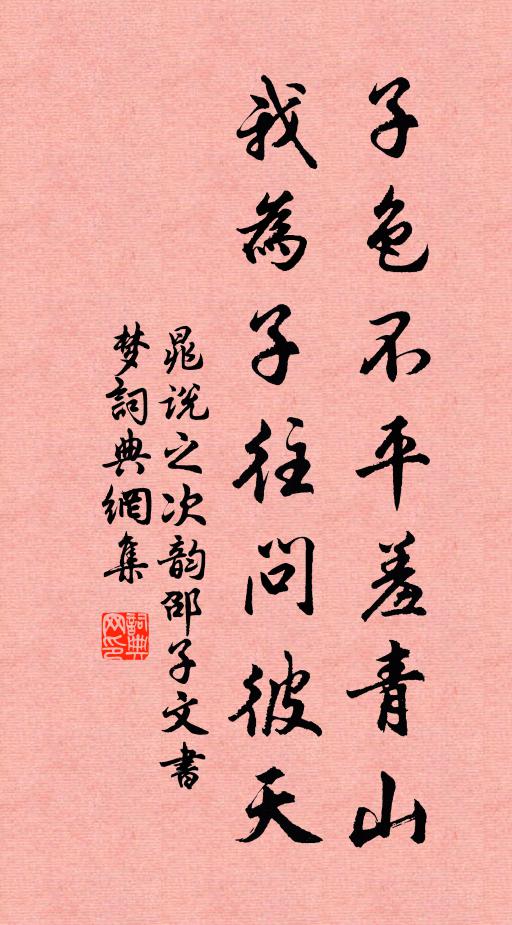 子色不平羞青山
我為子往問彼天
晁說之次韵邵子文書
梦詞典網集
詞典网印